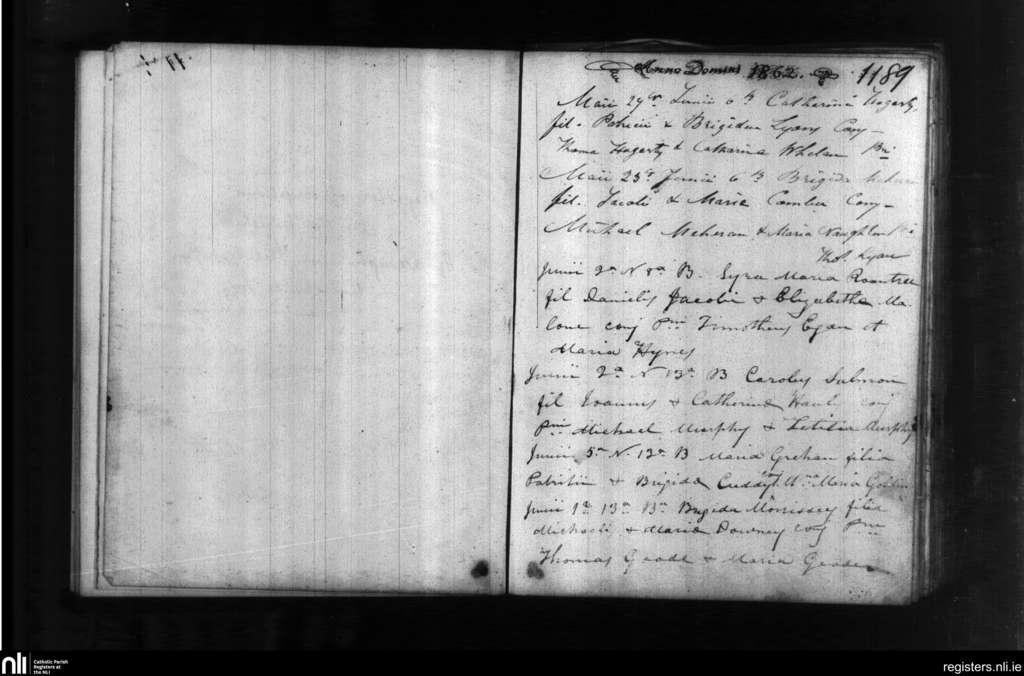 Anno Domini 1862. 1189
Maii 29 Junii 6 Catharina Hogerty
fil. Patricii & Brigidae Lyons Conj
Thoma Hagerty & Catharina Whelan
Maii 23 Junii 6 Brigida
fil. Jacobi & Maria Comber Conj
Michael Meheran & Maria Naughton
Thos. Lyan
Junii 2a N 8a B. Syra Maria Roontree
fil Danielis Jacobi & Elizabetha Ma
lone conj Pni Timotheus Egan et
Maria Hynes
Junii 2a N 13a B Carolus Salmon
fil Joannis & Catherina conj
Pni Michael Murphy & Letitia Murphy
Junii 5a N. 12a B Maria Grehan filia
Patritii & Brigida Cuddy Maria
Junii 1a 13a Bn Brigida Morrissey filia
Michaeli & Maria Downey conj Pni
Thomas Geade & Maria
nli Catholic Parish
Registers at
the NLI
registers.nli.ie